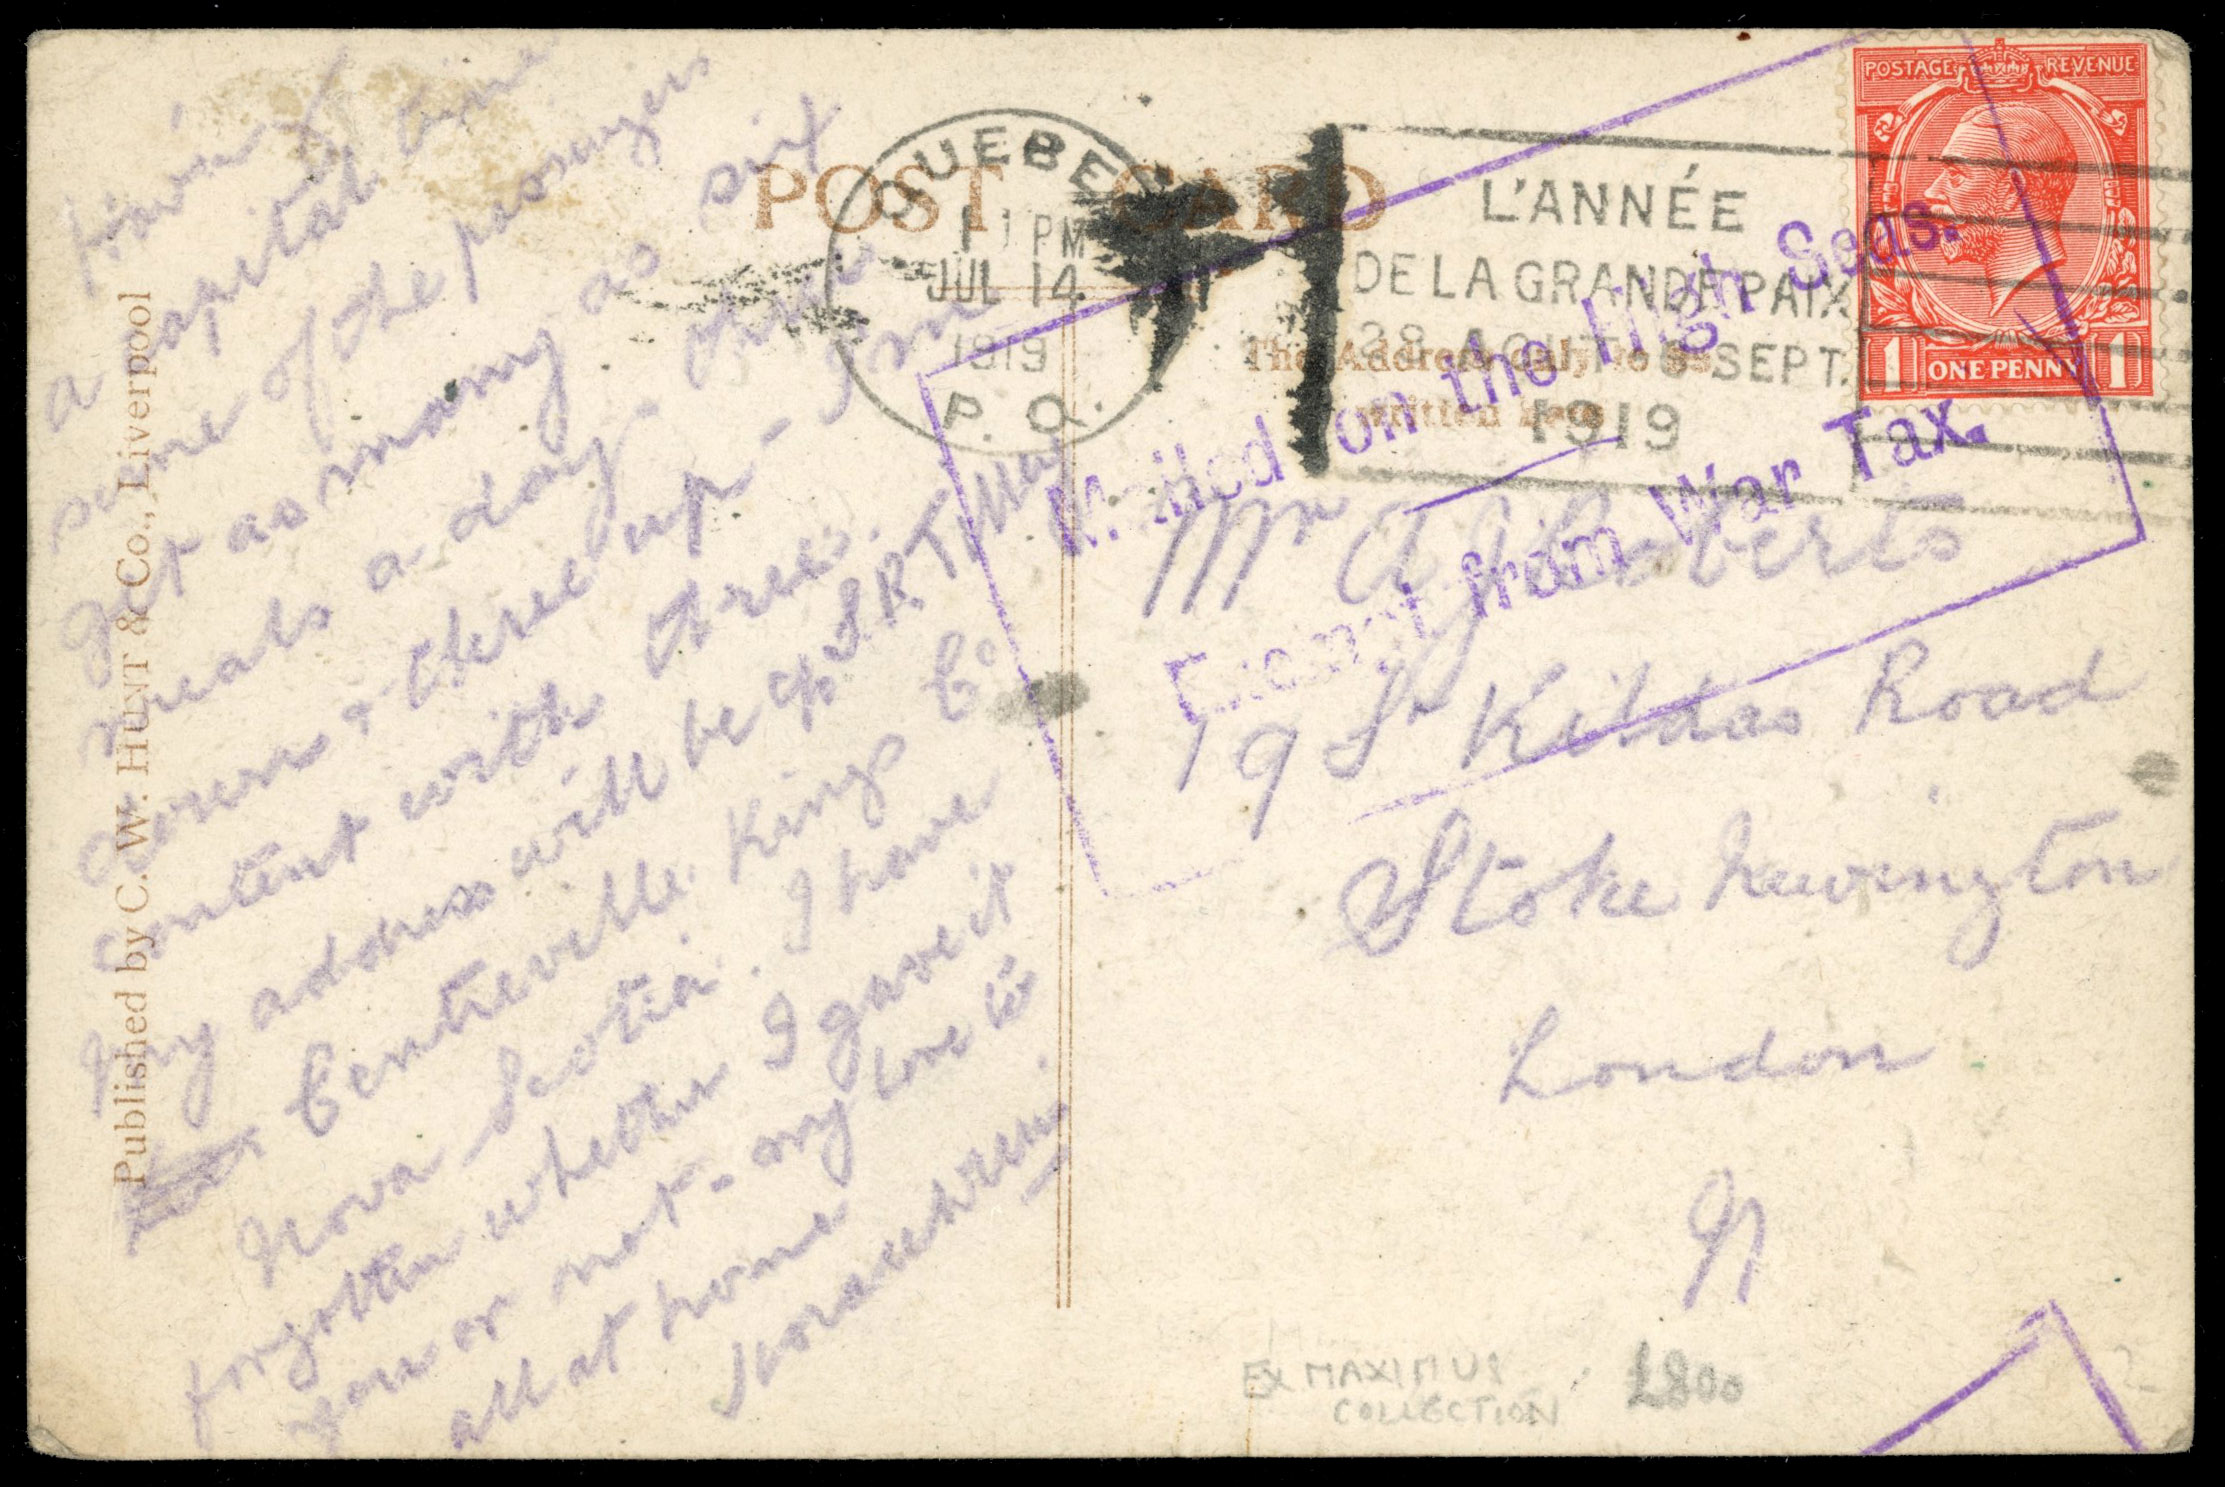 POST CARD
QUEBEC
11 PM
JUL 14
1919
P. Q.
L'ANNÉE
DE LA GRANDE PAIX
28 AOUT 6 SEPT.
1919
POSTAGE REVENUE
1 ONE PENNY 1
The Address only to be
written here
Mailed on the High Seas.
Exempt from War Tax.
Published by C. W. HUNT & Co., Liverpool
having
a capital time
some of the passengers
get as many as six
meals a day
down & three up - I'm
content with three.
My address will be c/o S.R.T. May
Centreville Kings Co
Nova Scotia. I have
forgotten whether I gave it
you or not - my love to
all at home
Mr A J Roberts
19 St Kildas Road
Stoke Newington
London
N
EX MAXIMUS
COLLECTION
£800